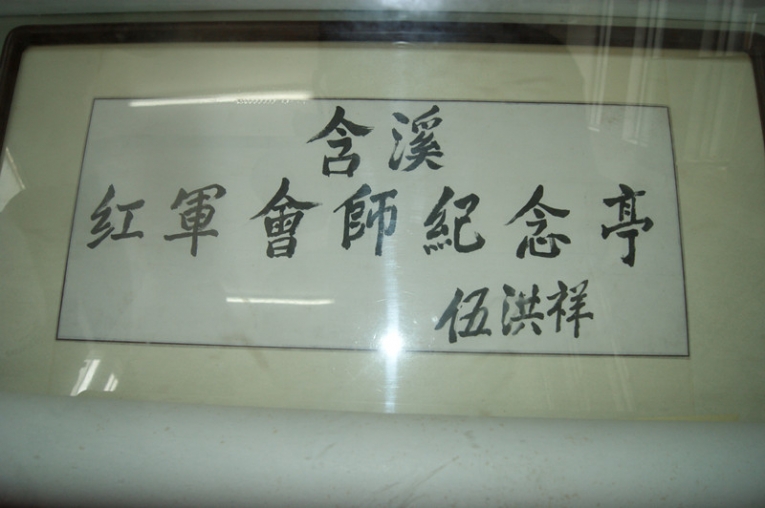 含溪
红軍會師紀念亭
伍洪祥